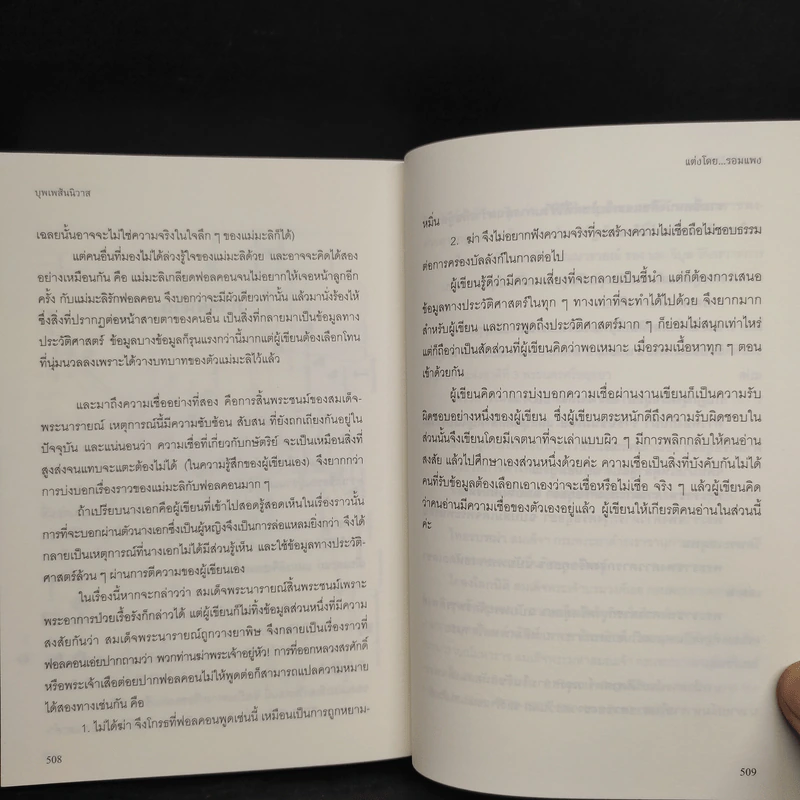 บุพเพสันนิวาส
เฉลยนั้นอาจจะไม่ใช่ความจริงในใจลึก ๆ ของแม่มะลิก็ได้)
แต่คนอื่นที่มองไม่ได้ล่วงรู้ใจของแม่มะลิด้วย และอาจจะคิดได้สอง
อย่างเหมือนกัน คือ แม่มะลิเกลียดฟอลคอนจนไม่อยากให้เจอหน้าลูกอีก
ครั้ง กับแม่มะลิรักฟอลคอน จึงบอกว่าจะมีผัวเดียวเท่านั้น แล้วมานั่งร้องไห้
ซึ่งสิ่งที่ปรากฏต่อหน้าสายตาของคนอื่น เป็นสิ่งที่กลายมาเป็นข้อมูลทาง
ประวัติศาสตร์ ข้อมูลบางข้อมูลก็รุนแรงกว่านี้มากแต่ผู้เขียนต้องเลือกโทน
ที่นุ่มนวลลงเพราะได้วางบทบาทของตัวแม่มะลิไว้แล้ว
และมาถึงความเชื่ออย่างที่สอง คือการสิ้นพระชนม์ของสมเด็จ-
พระนารายณ์ เหตุการณ์นี้มีความซับซ้อน สับสน ที่ยังถกเถียงกันอยู่ใน
ปัจจุบัน และแน่นอนว่า ความเชื่อที่เกี่ยวกับกษัตริย์ จะเป็นเหมือนสิ่งที่
สูงส่งจนแทบจะแตะต้องไม่ได้ (ในความรู้สึกของผู้เขียนเอง) จึงยากกว่า
การบ่งบอกเรื่องราวของแม่มะลิกับฟอลคอนมาก ๆ
ถ้าเปรียบนางเอกคือผู้เขียนที่เข้าไปสอดรู้สอดเห็นในเรื่องราวนั้น
การที่จะบอกผ่านตัวนางเอกซึ่งเป็นผู้หญิงจึงเป็นการล่อแหลมยิ่งกว่า จึงได้
กลายเป็นเหตุการณ์ที่นางเอกไม่ได้มีส่วนรู้เห็น และใช้ข้อมูลทางประวัติ-
ศาสตร์ล้วน ๆ ผ่านการตีความของผู้เขียนเอง
ในเรื่องนี้หากจะกล่าวว่า สมเด็จพระนารายณ์สิ้นพระชนม์เพราะ
พระอาการป่วยเรื้อรังก็กล่าวได้ แต่ผู้เขียนก็ไม่ทิ้งข้อมูลส่วนหนึ่งที่มีความ
สงสัยกันว่า สมเด็จพระนารายณ์ถูกวางยาพิษ จึงกลายเป็นเรื่องราวที่
ฟอลคอนเอ่ยปากถามว่า พวกท่านฆ่าพระเจ้าอยู่หัว! การที่ออกหลวงสรศักดิ์
หรือพระเจ้าเสือต่อยปากฟอลคอนไม่ให้พูดต่อก็สามารถแปลความหมาย
ได้สองทางเช่นกัน คือ
1. ไม่ได้ฆ่า จึงโกรธที่ฟอลคอนพูดเช่นนี้ เหมือนเป็นการถูกหยาม-
508
แต่งโดย...รอมแพง
หมิ่น
2. ฆ่า จึงไม่อยากฟังความจริงที่จะสร้างความไม่เชื่อถือไม่ชอบธรรม
ต่อการครองบัลลังก์ในกาลต่อไป
ผู้เขียนรู้ดีว่ามีความเสี่ยงที่จะกลายเป็นชี้นำ แต่ก็ต้องการเสนอ
ข้อมูลทางประวัติศาสตร์ในทุก ๆ ทางเท่าที่จะทำได้ไปด้วย จึงยากมาก
สำหรับผู้เขียน และการพูดถึงประวัติศาสตร์มาก ๆ ก็ย่อมไม่สนุกเท่าไหร่
แต่ก็ถือว่าเป็นสัดส่วนที่ผู้เขียนคิดว่าพอเหมาะ เมื่อรวมเนื้อหาทุก ๆ ตอน
เข้าด้วยกัน
ผู้เขียนคิดว่าการบ่งบอกความเชื่อผ่านงานเขียนก็เป็นความรับ
ผิดชอบอย่างหนึ่งของผู้เขียน ซึ่งผู้เขียนตระหนักดีถึงความรับผิดชอบใน
ส่วนนั้นจึงเขียนโดยมีเจตนาที่จะเล่าแบบผิว ๆ มีการพลิกกลับให้คนอ่าน
สงสัย แล้วไปศึกษาเองส่วนหนึ่งด้วยค่ะ ความเชื่อเป็นสิ่งที่บังคับกันไม่ได้
คนที่รับข้อมูลต้องเลือกเอาเองว่าจะเชื่อหรือไม่เชื่อ จริง ๆ แล้วผู้เขียนคิด
ว่าคนอ่านมีความเชื่อของตัวเองอยู่แล้ว ผู้เขียนให้เกียรติคนอ่านในส่วนนี้
ค่ะ
509